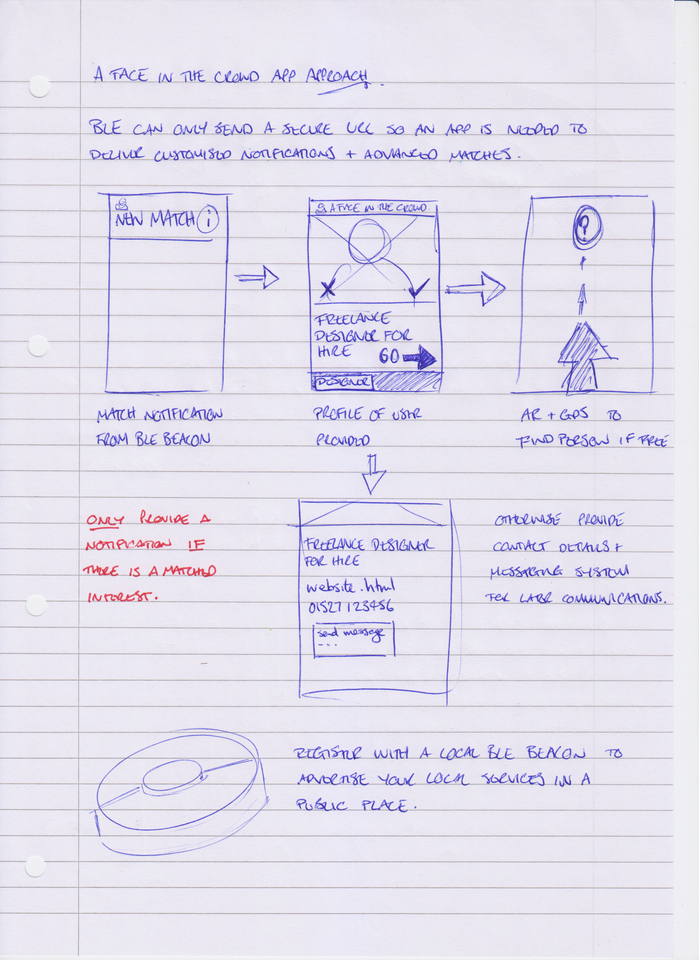 A FACE IN THE CROWD APP APPROACH.
BLE CAN ONLY SEND A SECURE URL SO AN APP IS NEEDED TO
DELIVER CUSTOMISED NOTIFICATIONS + ADVANCED MATCHES.
NEW MATCH i
A FACE IN THE CROWD
FREELANCE
DESIGNER FOR
HIRE
GO
DESIGNER
?
MATCH NOTIFICATION
FROM BLE BEACON
PROFILE OF USER
PROVIDED
AR + GPS TO
FIND PERSON IF FREE
ONLY PROVIDE A
NOTIFICATION IF
THERE IS A MATCHED
INTEREST.
FREELANCE DESIGNER
FOR HIRE
website.html
01527 123456
send message
---
OTHERWISE PROVIDE
CONTACT DETAILS +
MESSAGING SYSTEM
FOR LATER COMMUNICATIONS.
REGISTER WITH A LOCAL BLE BEACON TO
ADVERTISE YOUR LOCAL SERVICES IN A
PUBLIC PLACE.